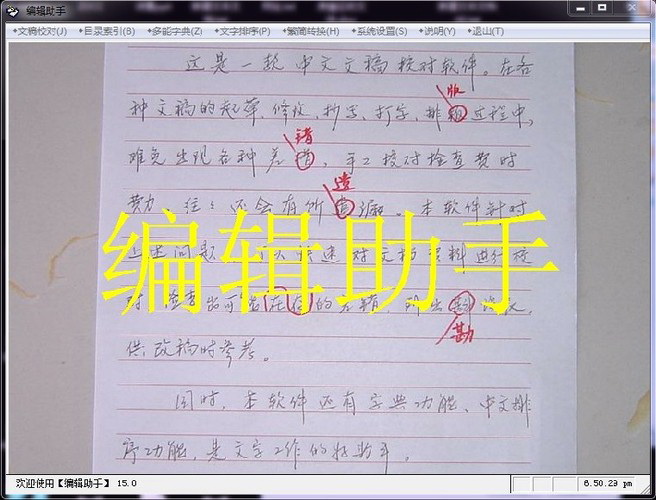 编辑助手
文稿校对(J) 目录索引(B) 多能字典(Z) 文字排序(P) 繁简转换(H) 系统设置(S) 说明(Y) 退山(T)
这是一款中文文稿校对软件。在各
版
种文稿的起草、修改、抄写、打字、排过程中,
错
难免出现各种差,手工校对检查费时
遗
费力,往々还会有所漏。本软件针对
编辑助手
上述问题 速对文档资料进行校
对,查出可能在的差错,列出误,
勘
供改稿时参考。
同时,本软件还有字典功能、中文排
序功能,是文字工作的好助手。
欢迎使用【编辑助手】 15.0
6.50.29 pm